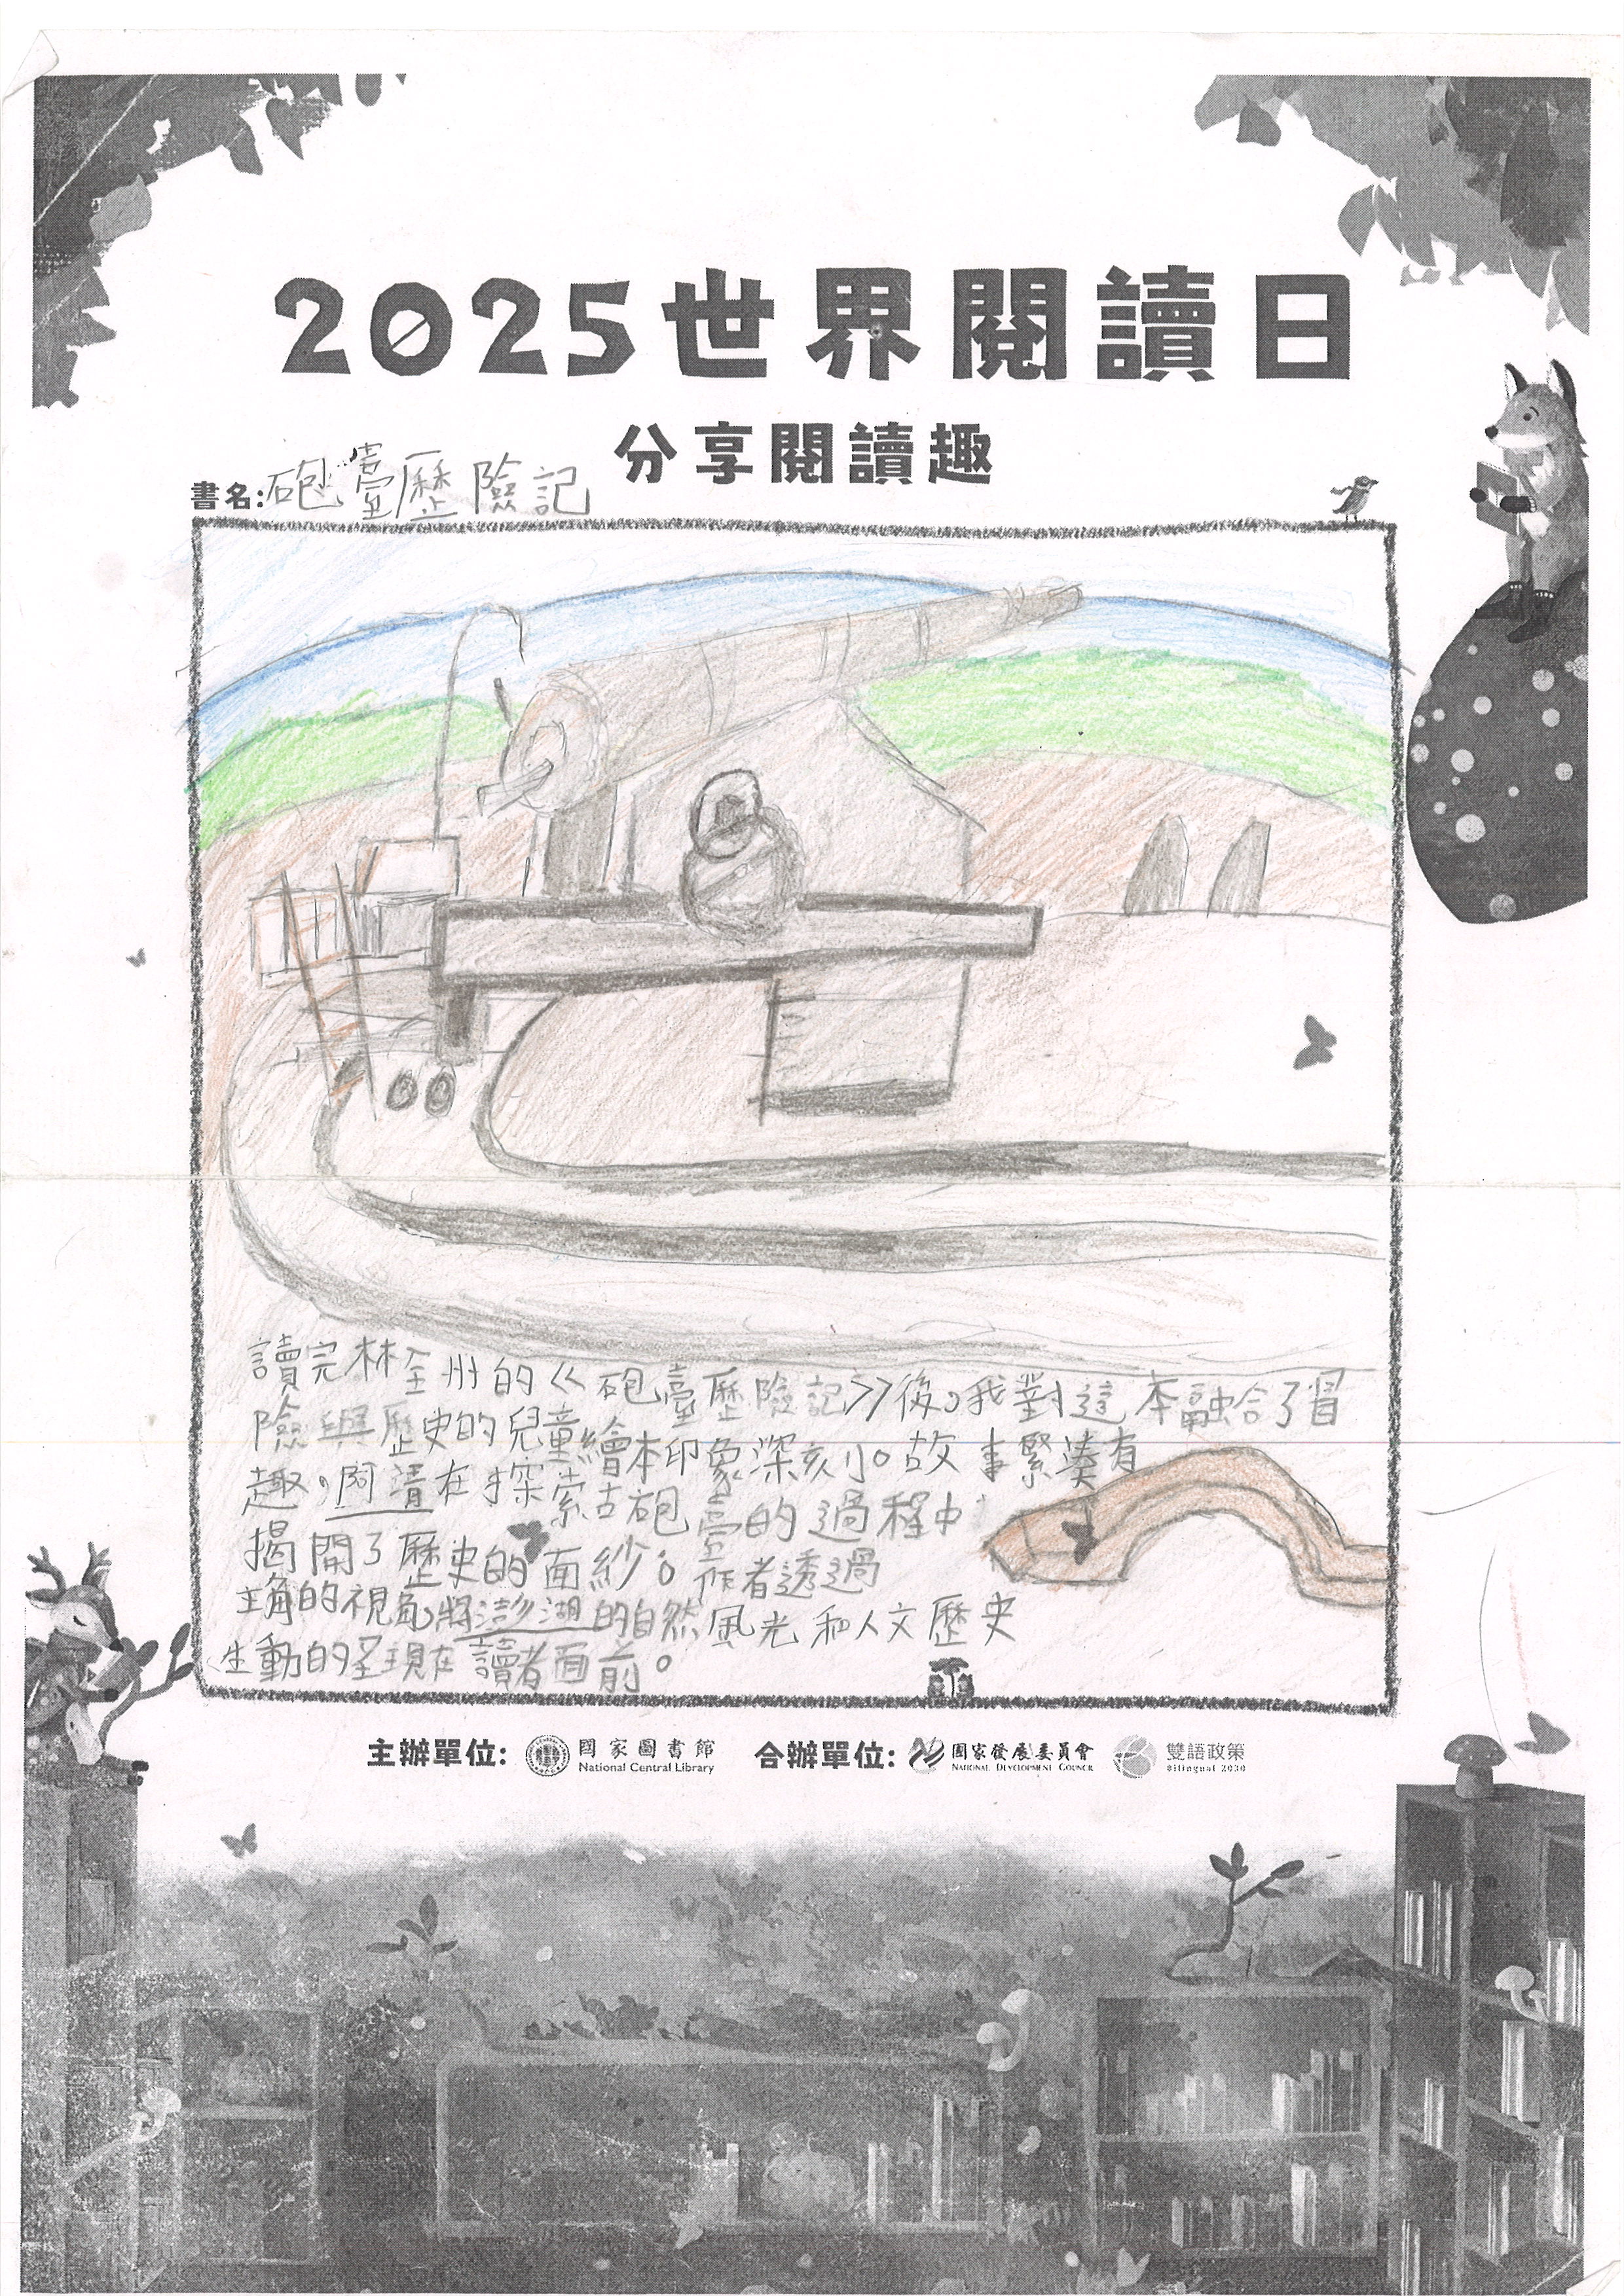 2025世界閱讀日
分享閱讀趣
書名:砲臺歷險記
讀完林全州的《砲臺歷險記》後,我對這本融合了冒
險與歷史的兒童繪本印象深刻。故事緊湊有
趣,阿清在探索古砲臺的過程中
揭開了歷史的面紗。作者透過
主角的視角,將澎湖的自然風光和人文歷史
生動的呈現在讀者面前。
主辦單位: 國家圖書館 合辦單位: 國家發展委員會 雙語政策
National Central Library NATIONAL DEVELOPMENT COUNCIL Bilingual 2030